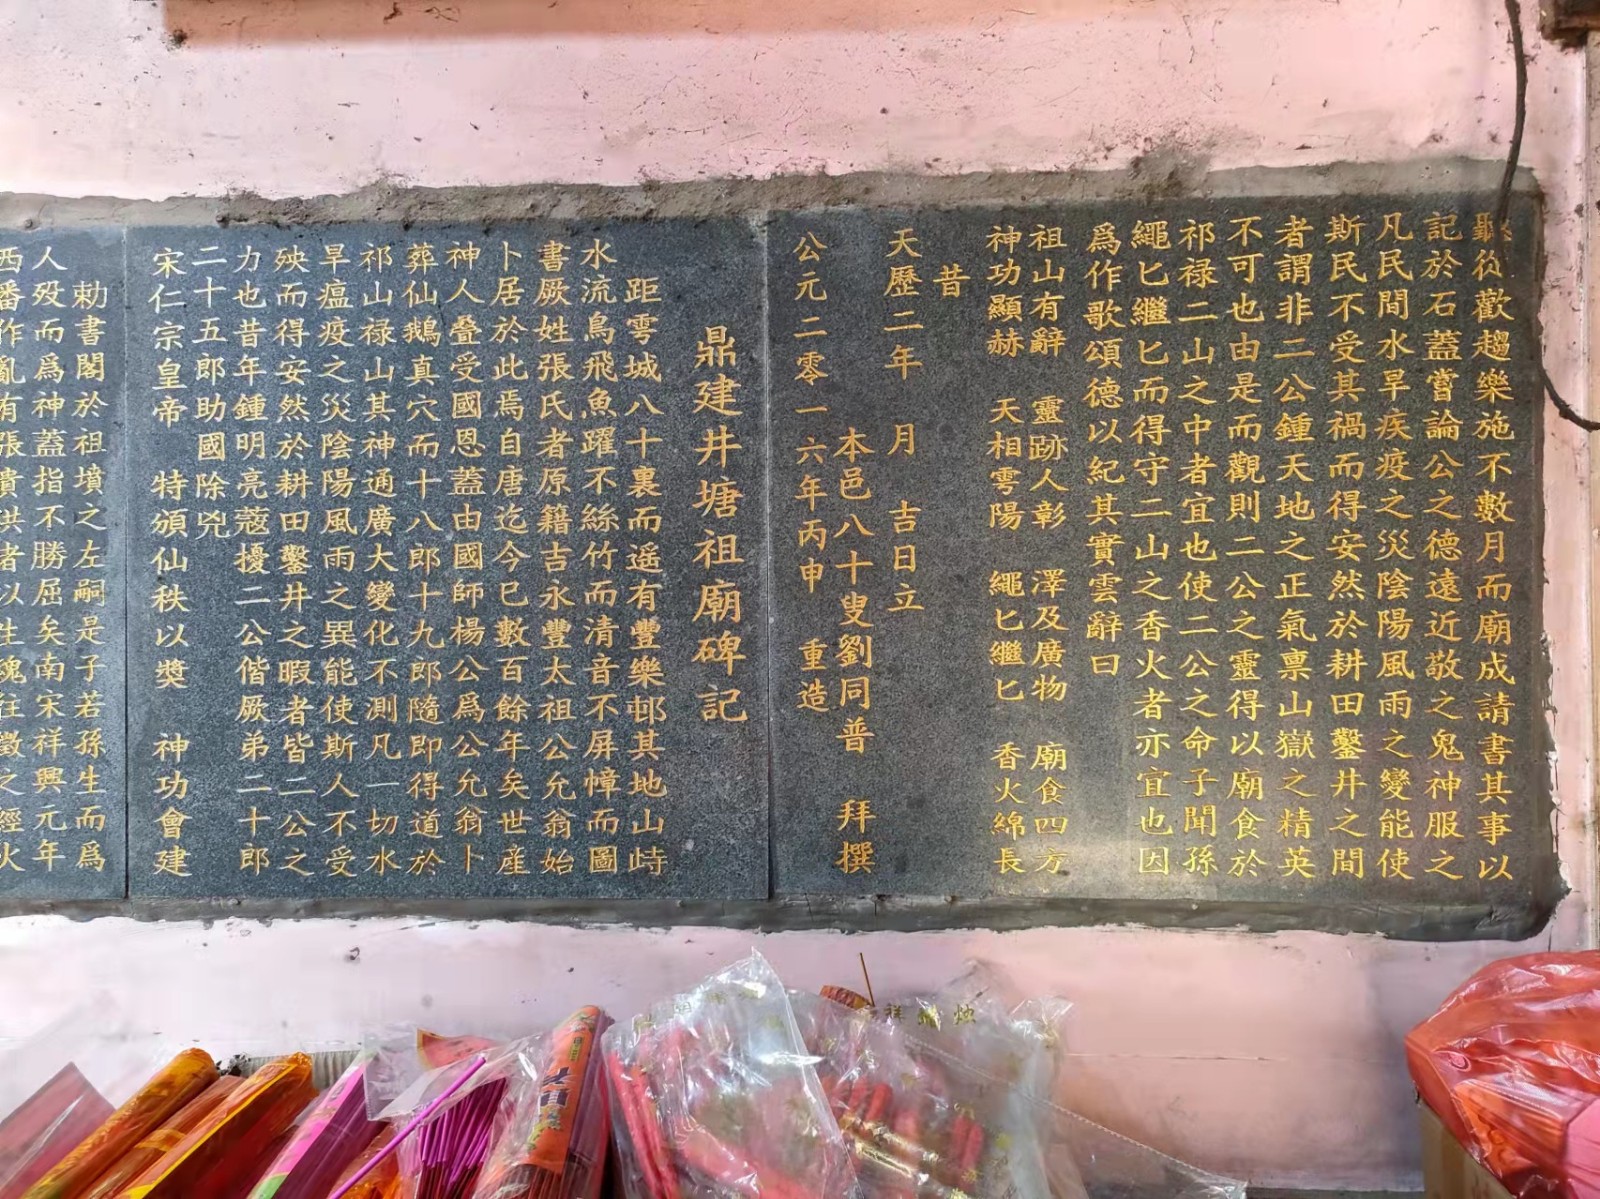 聽從歡趨樂施不數月而廟成請書其事以
記於石蓋嘗論公之德遠近敬之鬼神服之
凡民間水旱疾疫之災陰陽風雨之變能使
斯民不受其禍而得安然於耕田鑿井之間
者謂非二公鍾天地之正氣禀山嶽之精英
不可也由是而觀則二公之靈得以廟食於
祁禄二山之中者宜也使二公之命子聞孫
繩匕繼匕而得守二山之香火者亦宜也因
爲作歌頌德以紀其實雲辭曰
祖山有辭 靈跡人彰 澤及廣物 廟食四方
神功顯赫 天相雩陽 繩匕繼匕 香火綿長
昔
天歷二年 月 吉日立
本邑八十叟劉同普 拜撰
公元二零一六年丙申 重造
鼎建井塘祖廟碑記
距雩城八十裏而遥有豐樂邨其地山峙
水流鳥飛魚躍不絲竹而清音不屏幛而圖
書厥姓張氏者原籍吉永豐太祖公允翁始
卜居於此焉自唐迄今已數百餘年矣世産
神人叠受國恩蓋由國師楊公爲公允翁卜
葬仙鵝真穴而十八郎十九郎隨即得道於
祁山禄山其神通廣大變化不測凡一切水
旱瘟疫之災陰陽風雨之異能使斯人不受
殃而得安然於耕田鑿井之暇者皆二公之
力也昔年鍾明亮蔻擾二公偕厥弟二十郎
二十五郎助國除兇
宋仁宗皇帝 特頒仙秩以獎 神功會建
勅書閣於祖墳之左嗣是子若孫生而爲
人殁而爲神蓋指不勝屈矣南宋祥興元年
西番作亂有張貴洪者以生魂往徵之經火
祥 燭